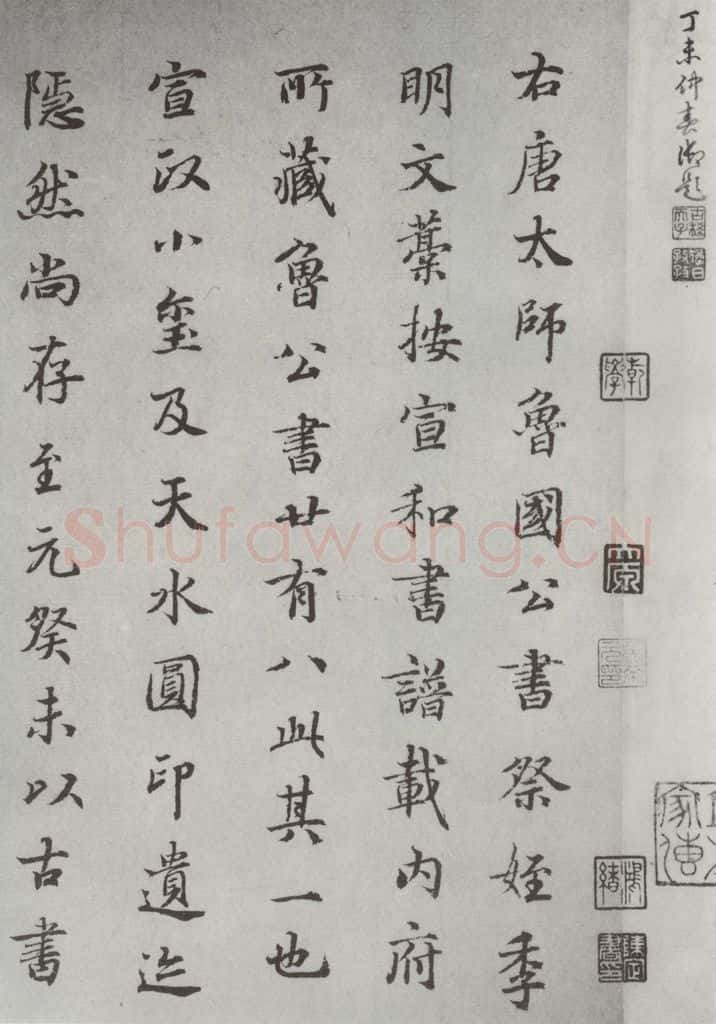 丁未仲春御題
古稀天子
乾學
右唐太師魯國公書祭姪季
明文藁按宣和書譜載内府
所藏魯公書廿有八此其一也
宣政小璽及天水圓印遺迹
隱然尚存至元癸未以古書
Shufawang.CN